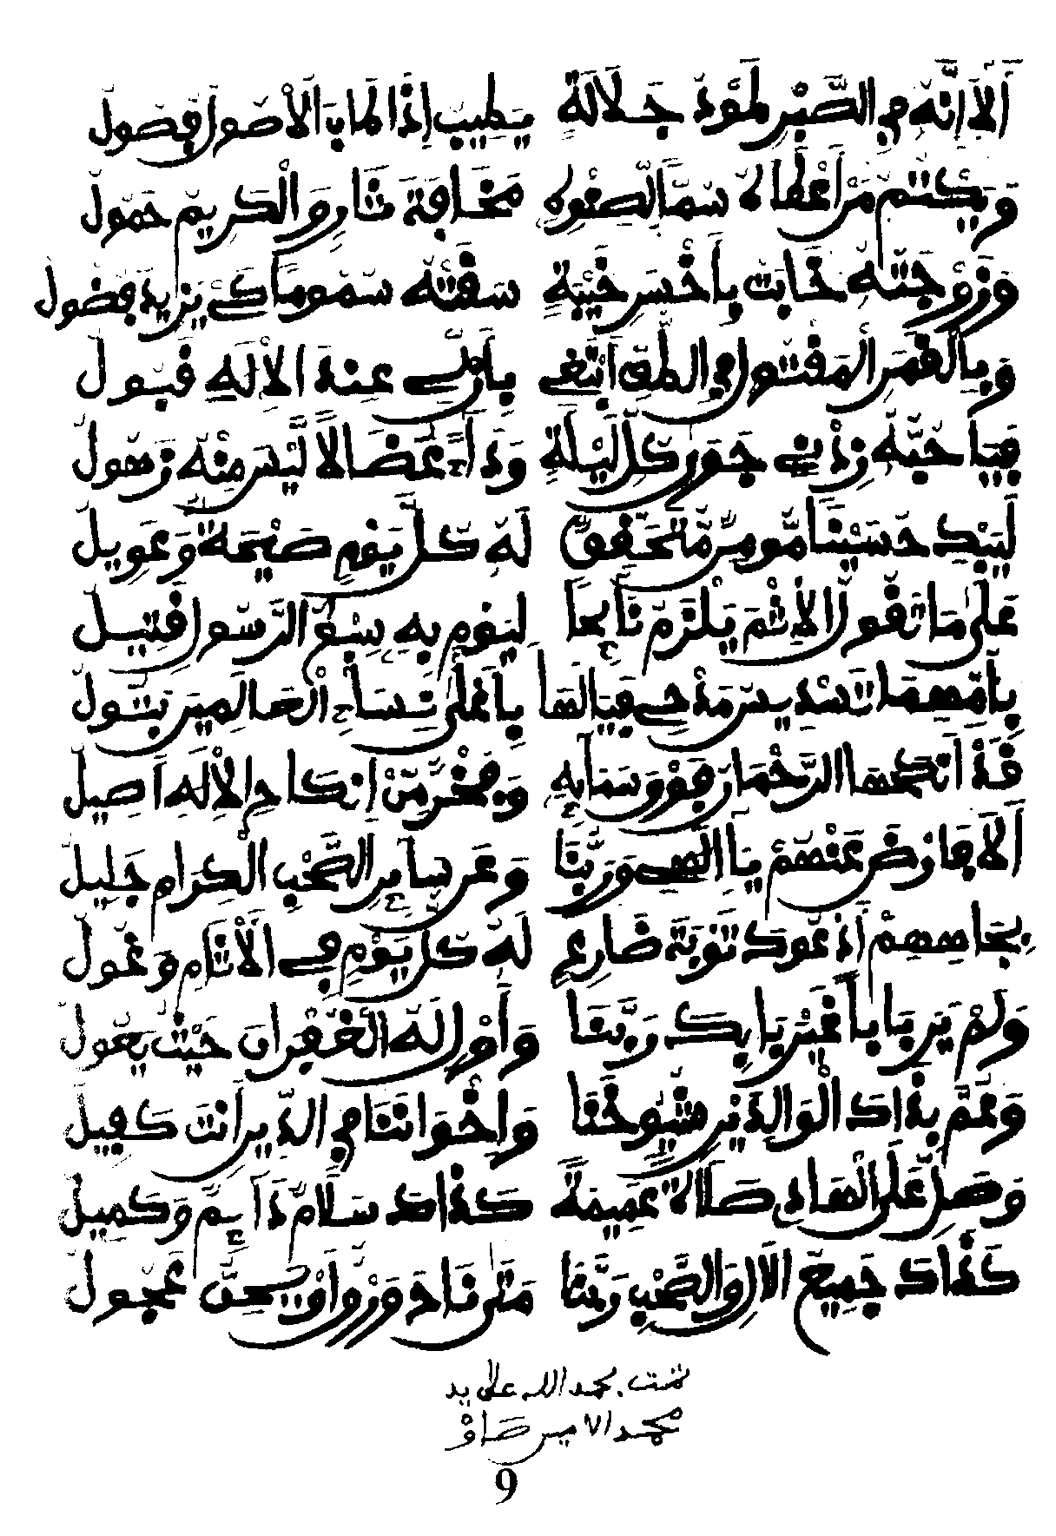 أَلاَ إِنَّهُ فِي الصَّبْرِ طَوْدُ جَلاَلَةٍ يَطِيبُ إِذَا طَابَ الْأُصُولُ فُصُولُ
وَيَكْتُمُ مَنْ أَعْطَاهُ سَمًّا لِصَفْوِهِ مَخَافَةَ ثَارٍ وَالْكَرِيمُ حَمُولُ
وَزَوْجَتُهُ خَابَتْ بِأَخْسَرِ خَيْبَةٍ سَقَتْهُ سَمُومًا كَيْ يَزِيدَ فُضُولُ
وَبِالْقَمَرِ الْمَقْتُولِ فِي الطَّفِّ أَبْتَغِي عِنْدَ الْإِلَهِ قَبُولُ
فَيَا حُبَّهُ زِدْنِي جَوًى كُلَّ لَيْلَةٍ وَدَاءً عُضَالاً لَيْسَ مِنْهُ زُهُولُ
لِيَبْكِ حُسَيْنًا مُؤْمِنٌ مُتَحَقِّقٌ لَهُ كُلَّ يَوْمٍ صَيْحَةٌ وَعَوِيلُ
عَلَى مَا تَقُولُ الْإِثْمُ يَلْزَمُ تَابِعًا لِيَوْمٍ بِهِ سِبْطُ الرَّسُولِ قَتِيلُ
بِأُمِّهِمَا فَيَالَهَا بِأَعْلَى نِسَاءِ الْعَالَمِينَ بَتُولُ
قَدْ أَنْكَحَهَا الرَّحْمَانُ فَوْقَ سَمَائِهِ وَفَخْرٌ مِنْ إِنْكَاحِ الْإِلَهِ أَصِيلُ
أَلاَ فَارْضَ عَنْهُمْ يَا إِلَهِي وَرَبَّنَا وَعَنْ سَائِرِ الصَّحْبِ الْكِرَامِ جَلِيلُ
بِجَاهِهِمُ أَدْعُوكَ تَوْبَةَ ضَارِعٍ لَهُ كُلَّ يَوْمٍ فِي الْأَثَامِ وَغُولُ
وَلَمْ يَرَ بَابًا غَيْرَ بَابِكَ رَبَّنَا وَأَوْلِ لَهُ الْغُفْرَانَ حَيْثُ يَعُولُ
وَعُمَّ بِذَاكَ الْوَالِدَيْنِ شُيُوخَنَا وَإِخْوَانَنَا فِي الدِّينِ أَنْتَ كَفِيلُ
وَصَلِّ عَلَى الْهَادِي صَلاَةً عَمِيمَةً كَذَاكَ سَلاَمٌ دَائِمٌ وَكَمِيلُ
كَذَاكَ جَمِيعَ الْآلِ وَالصَّحْبِ رَبَّنَا مَتَى نَاحَ وُرْقٌ أَوْ يَحِنُّ عَجُولُ
تمت بحمد الله على يد
محمد الامين صاو
9